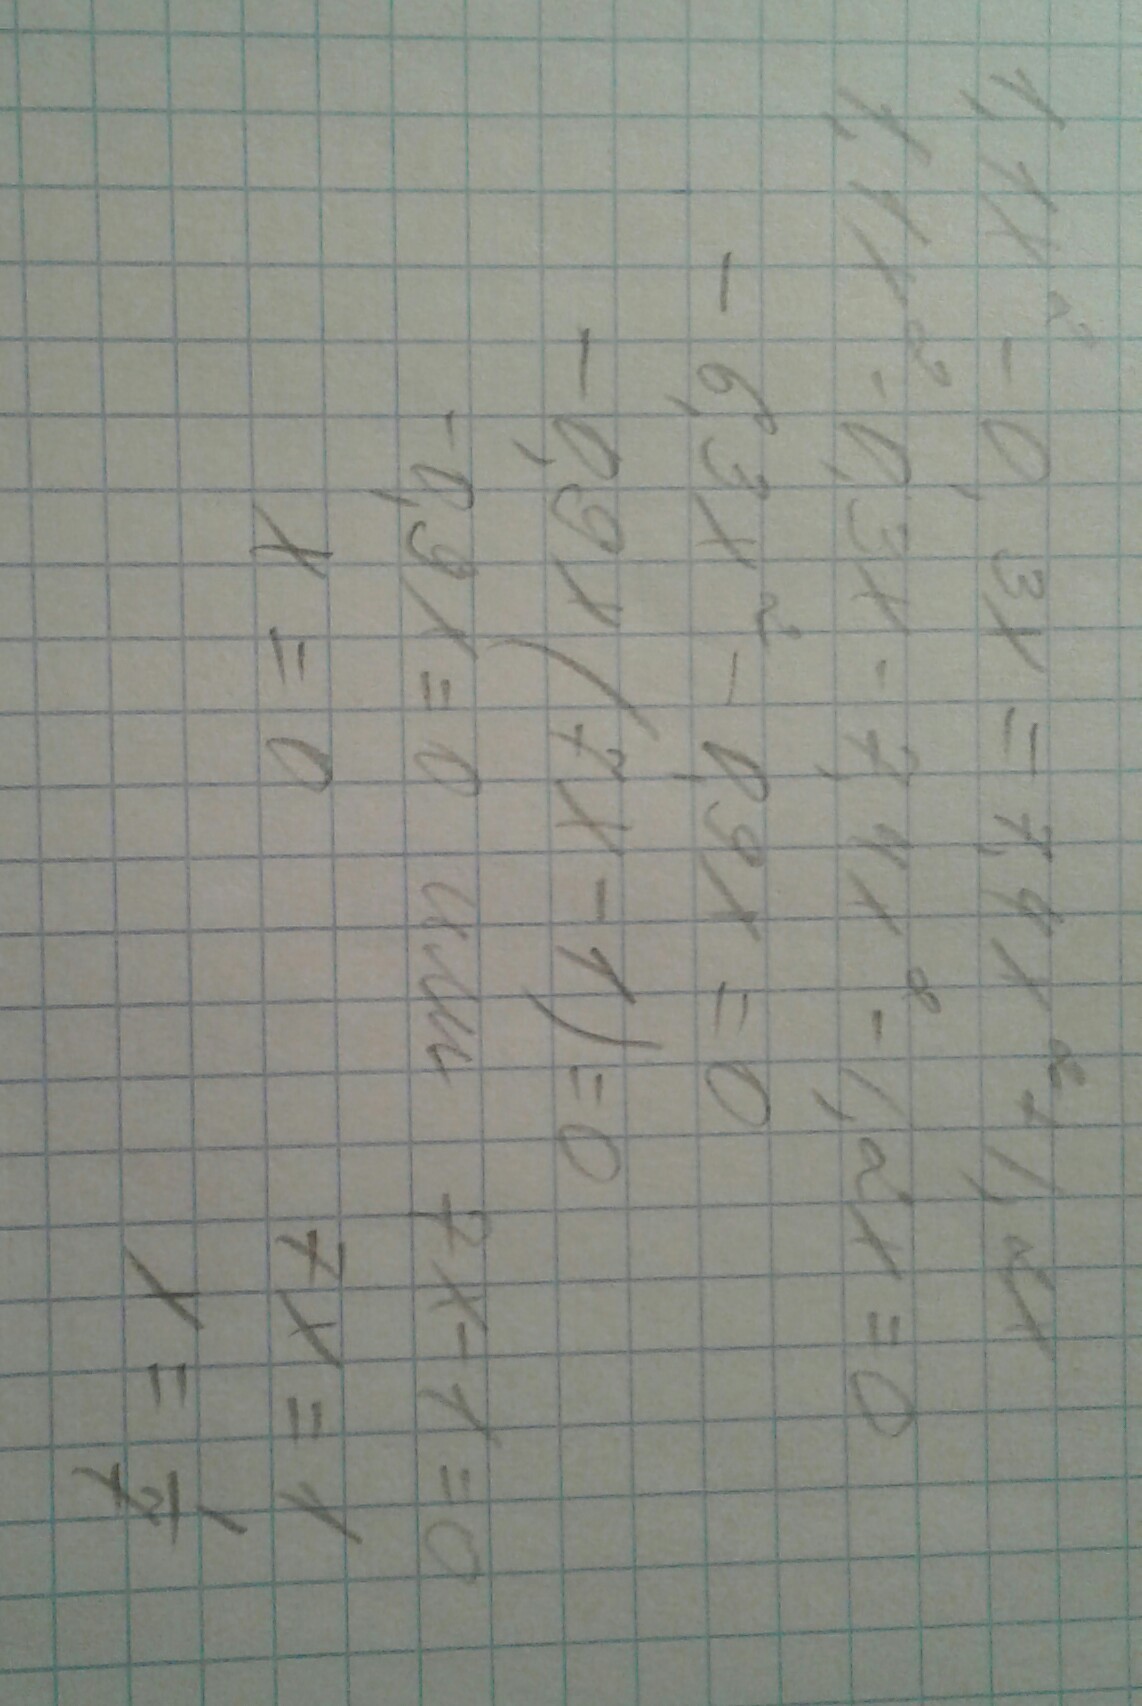 1,1x² - 0,3x = 7,4x² + 1,2x
1,1x² - 0,3x - 7,4x² - 1,2x = 0
- 6,3x² - 0,9x = 0
- 0,9x (7x - 1) = 0
- 0,9x = 0 или 7x - 1 = 0
x = 0 7x = 1
x = 1/7